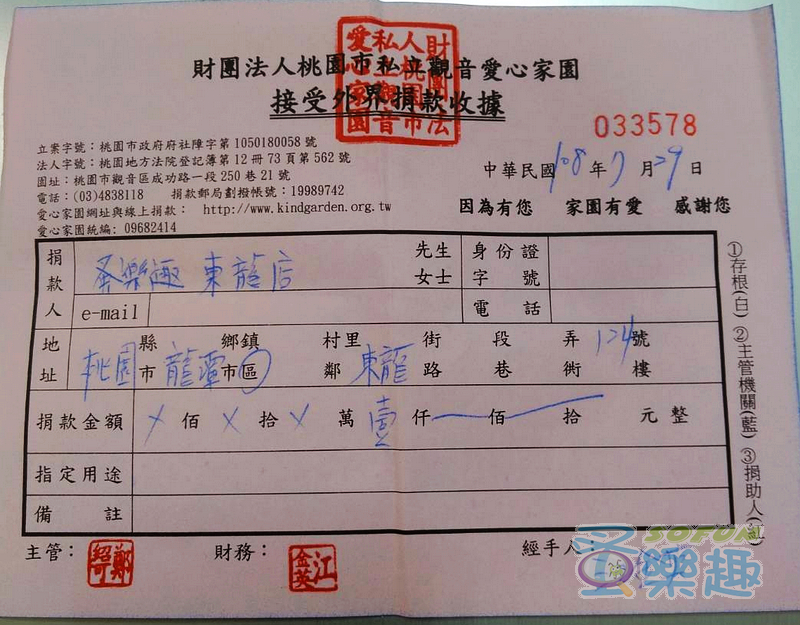 財團法人桃園市私立觀音愛心家園
接受外界捐款收據
財團法人桃園市私立觀音愛心家園
033578
立案字號：桃園市政府府社障字第1050180058號
法人字號：桃園地方法院登記簿第12冊73頁第562號
園址：桃園市觀音區成功路一段250巷21號
電話：(03)4838118 捐款郵局劃撥帳號：19989742
愛心家園網址與線上捐款： http://www.kindgarden.org.tw
愛心家園統編: 09682414
中華民國108年7月29日
因為有您 家園有愛 感謝您
捐款人 圣樂趣 東龍店 先生女士 身份證字號
e-mail 電話
地址 桃園縣市 龍潭鄉鎮市區 村里鄰 東龍街路 段巷 弄衖 124號樓
捐款金額 X佰X拾X萬壹仟 佰 拾 元整
指定用途
備註
①存根(白) ②主管機關(藍) ③捐助人(紅)
主管： 鄭紹可 財務： 江金英 經手人：
SOFUN
圣樂趣